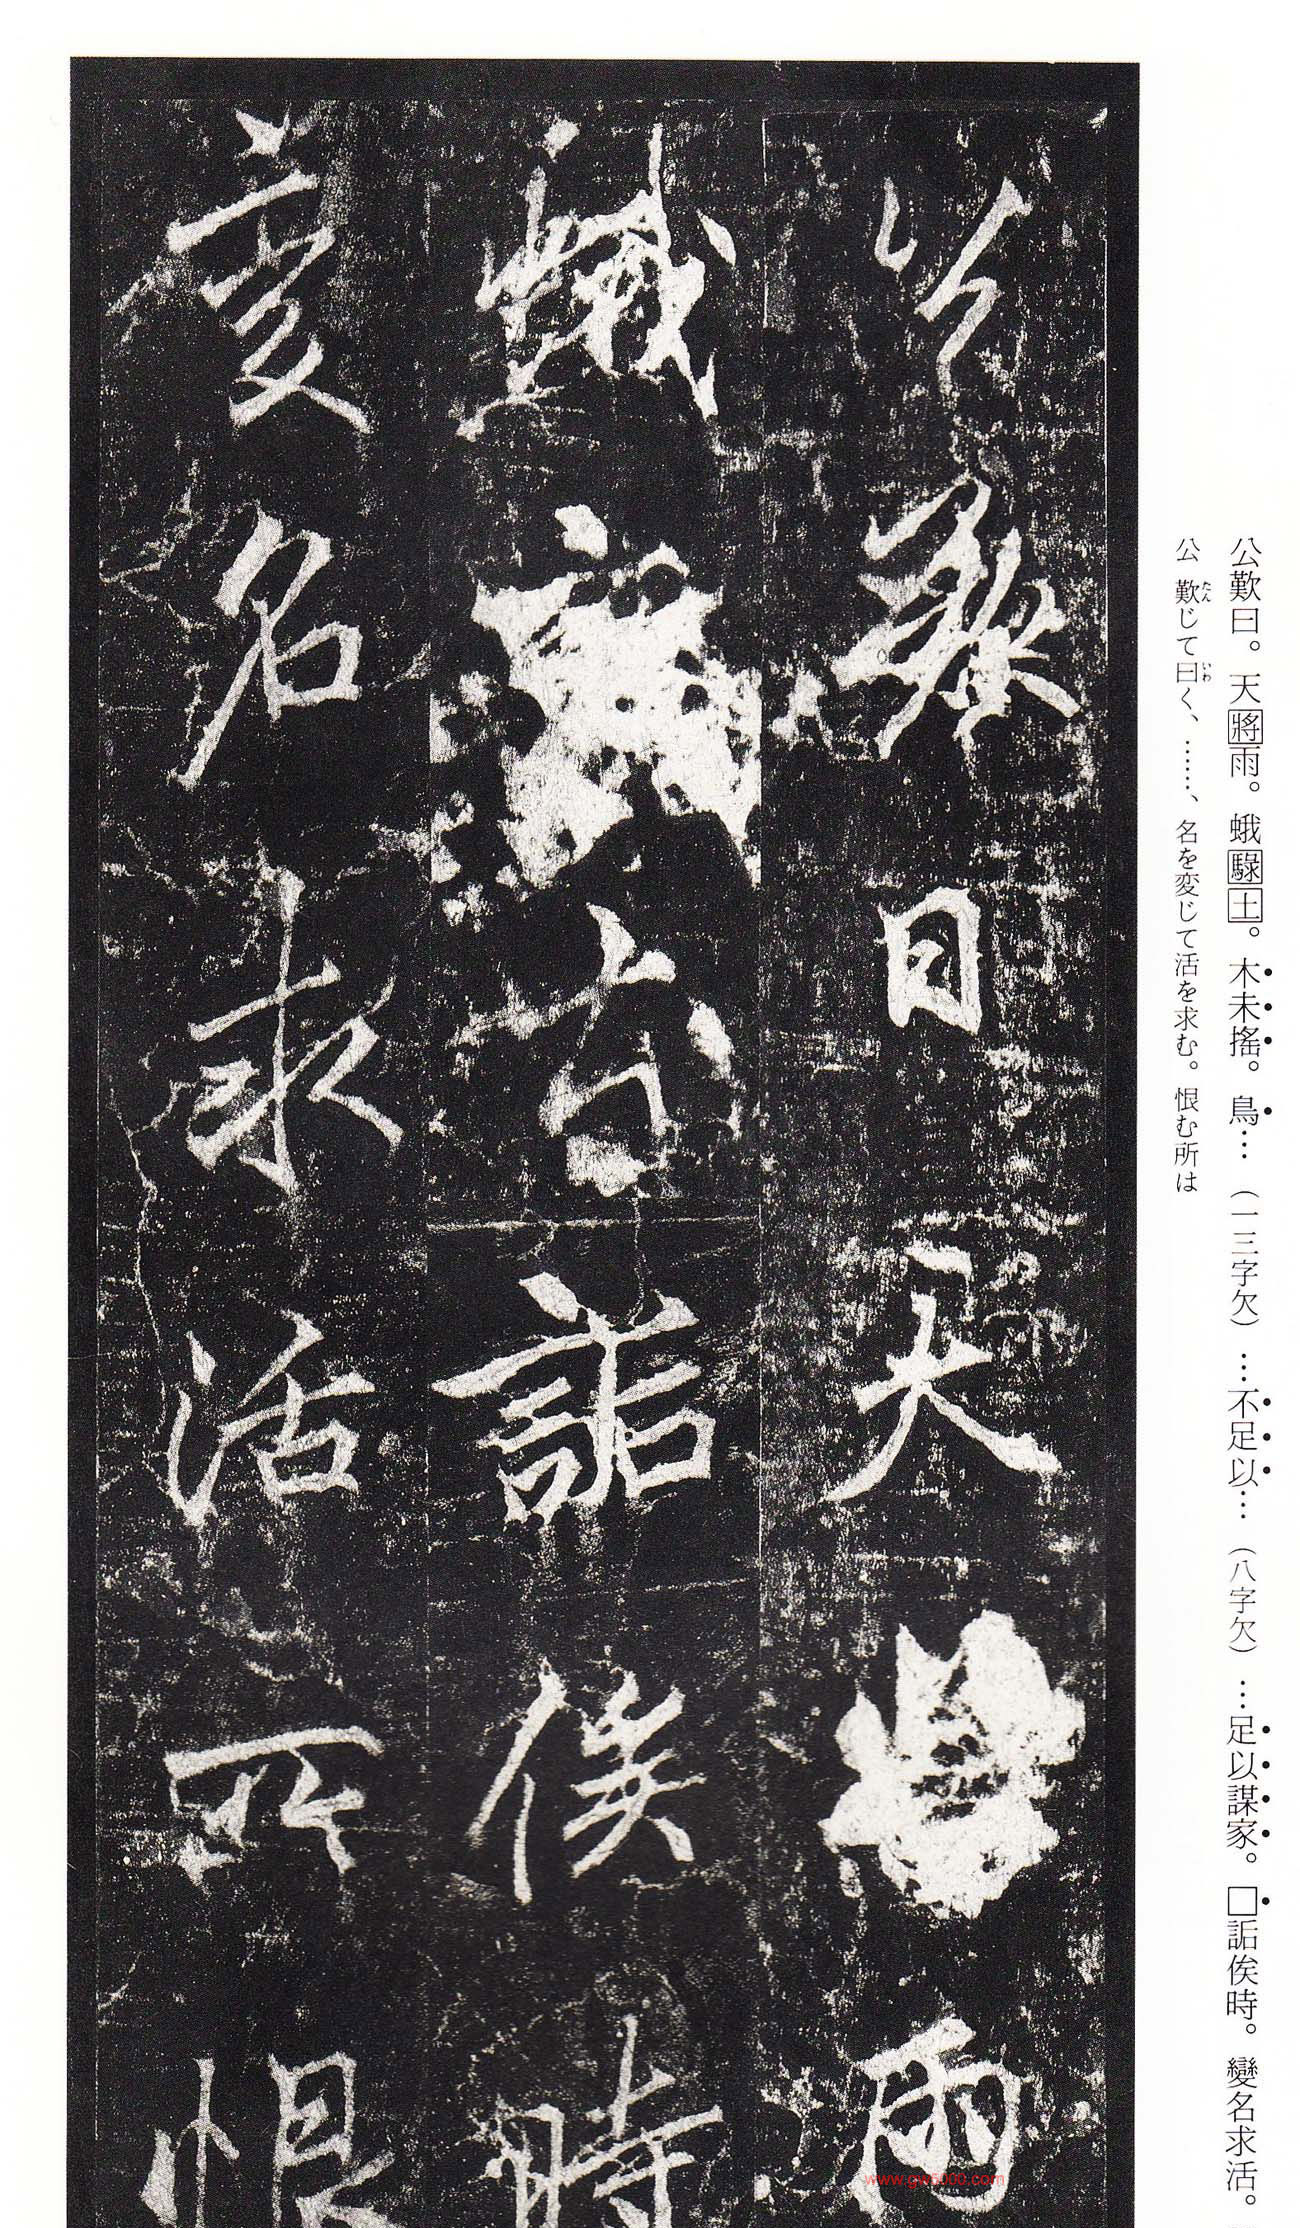 公歎曰。天將雨。蛾騄土。木未搖。鳥…（一三字欠）…不足以…（八字欠）…足以謀家。□詬俟時。變名求活。
公歎じて曰く、……、名を変じて活を求む。恨む所は
公歎曰天將雨
蛾詬俟時
變名求活所恨
www.gw5000.com